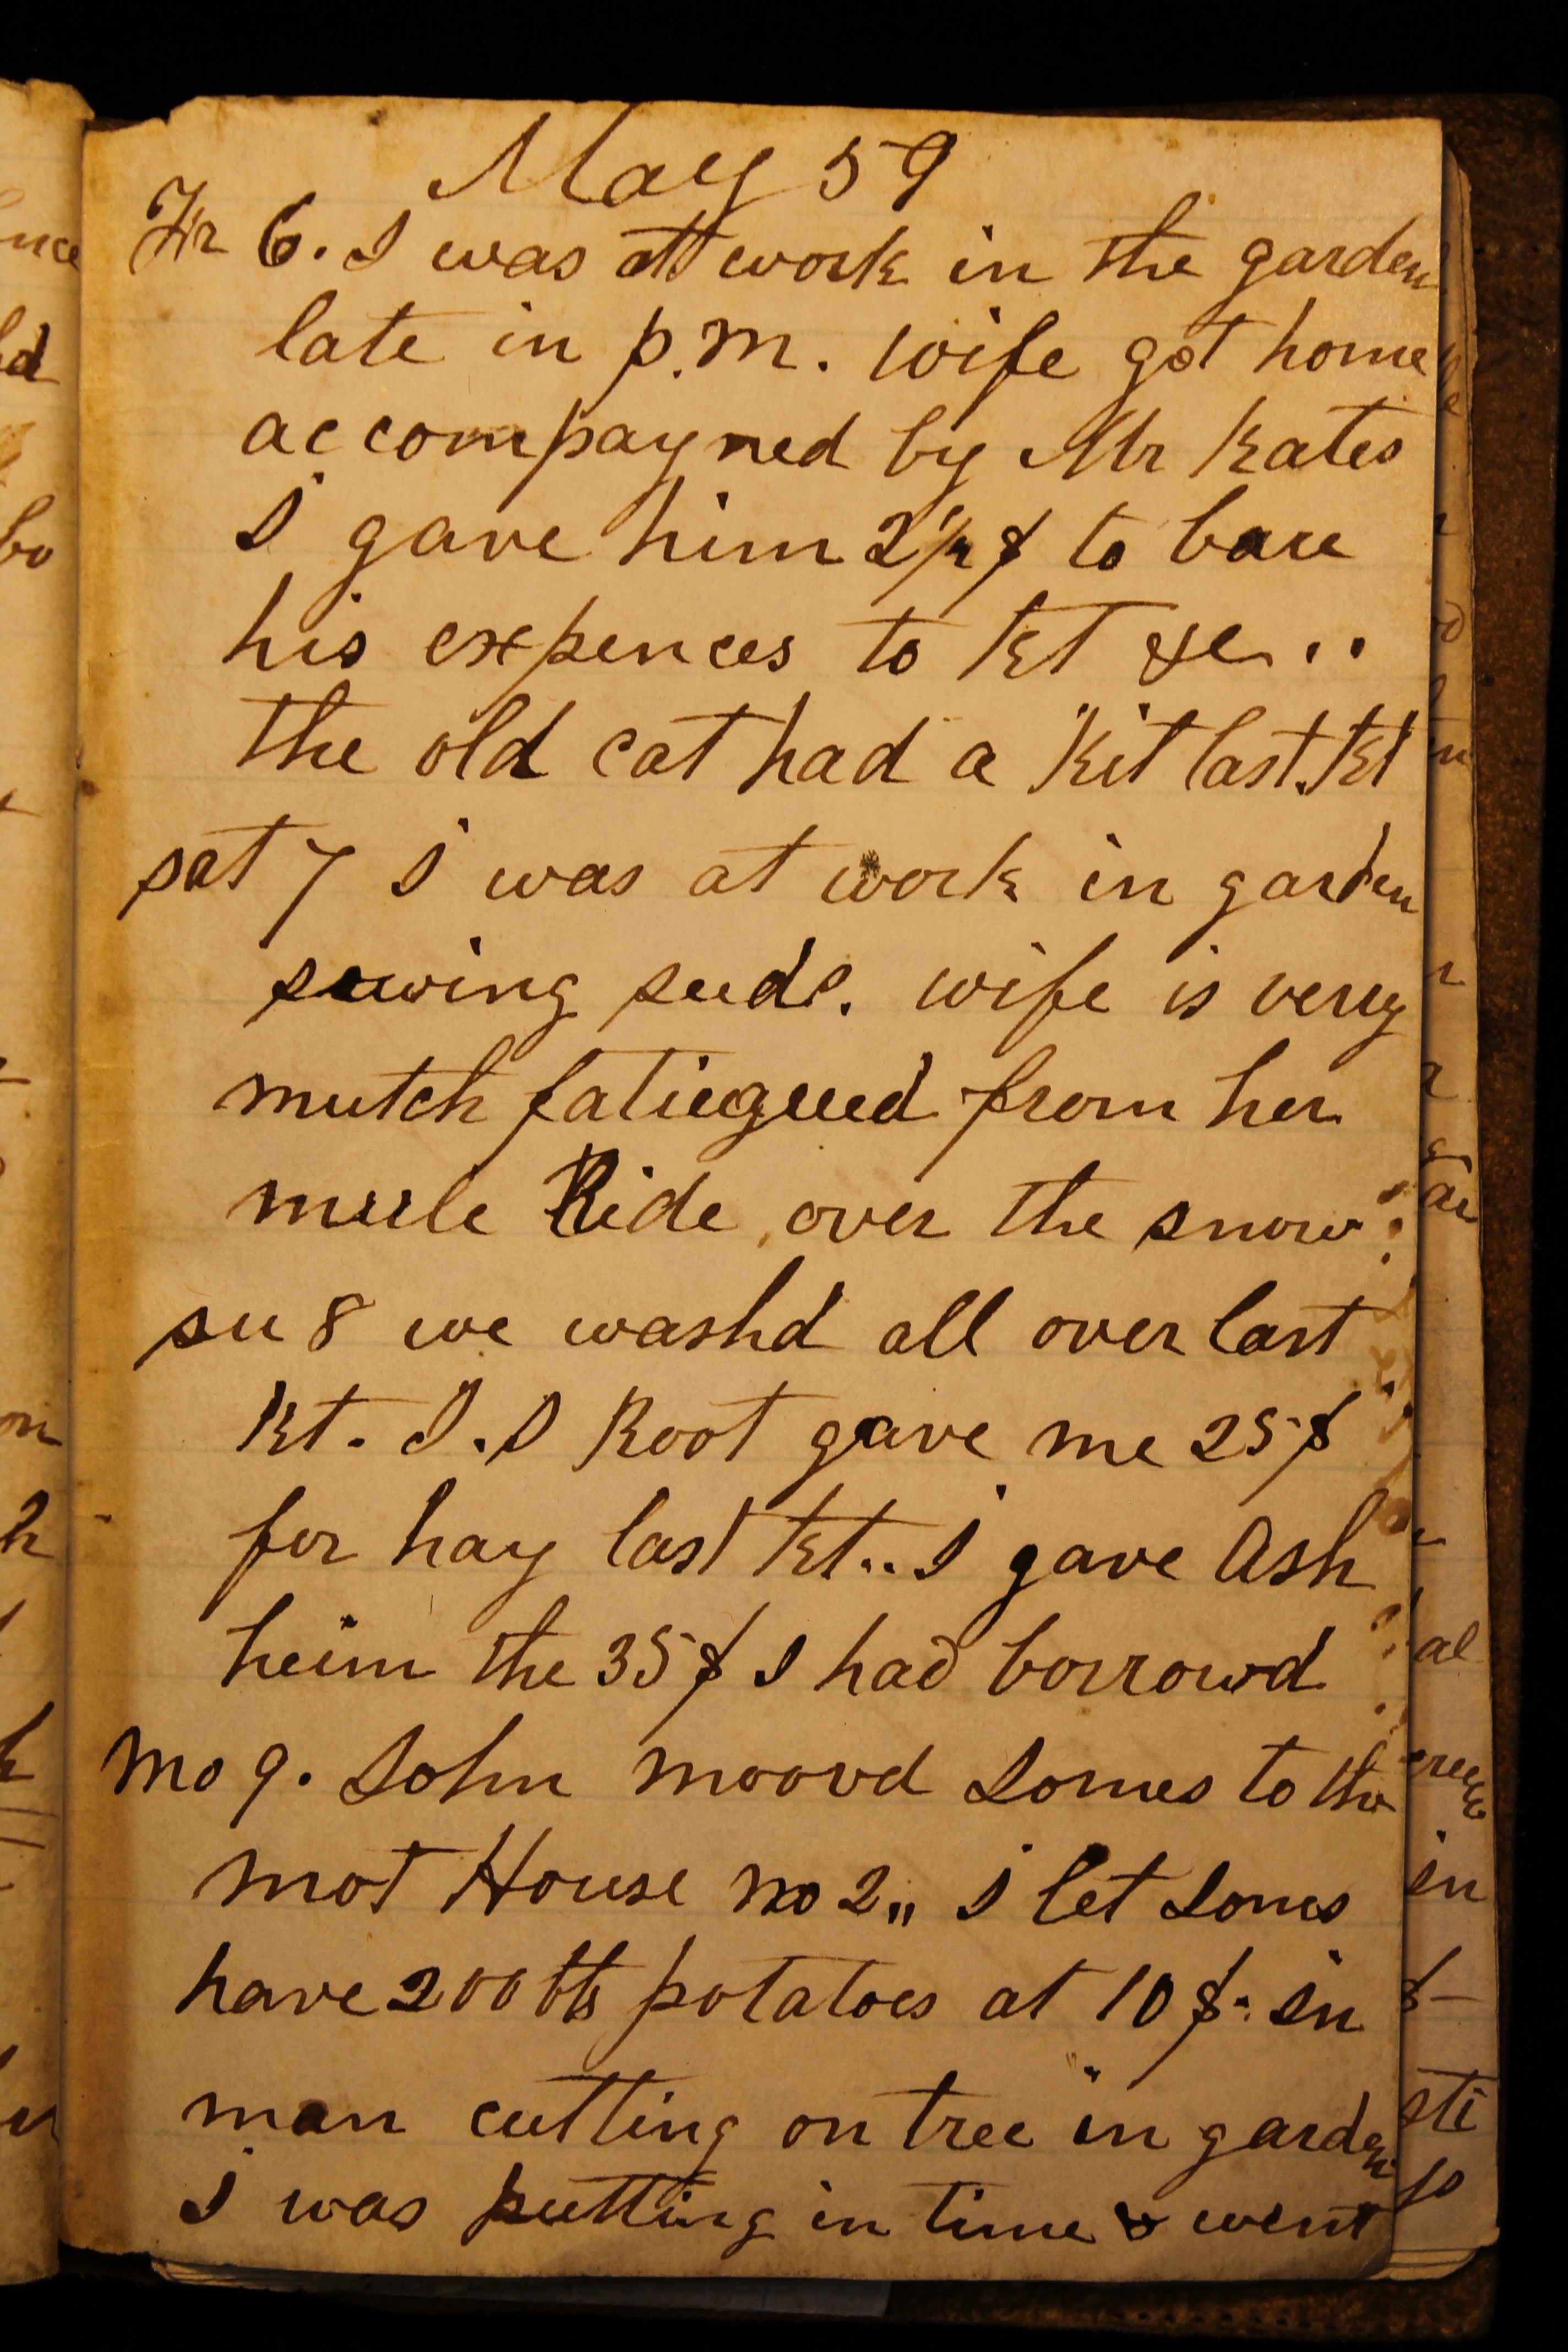 May 59
Fr 6. I was at work in the garden
late in p.m. wife got home
accompayned by Mr Kates
I gave him 2½ $ to bare
his expences to Kt &c..
the old cat had a Kit last Kt
sat 7 I was at work in garden
sowing seeds. wife is verry
mutch fatiegued from her
mule Ride over the snow
su 8 we washd all over last
Kt. I.S Root gave me 25 $
for hay last Kt.. I gave Ash
heim the 35 $ I had borrowd
Mo 9. John moovd Jones to the
mot House no 2,, I let Jones
have 200 lbs potatoes at 10 $. in
man cutting on tree in garden
I was putting in time & went